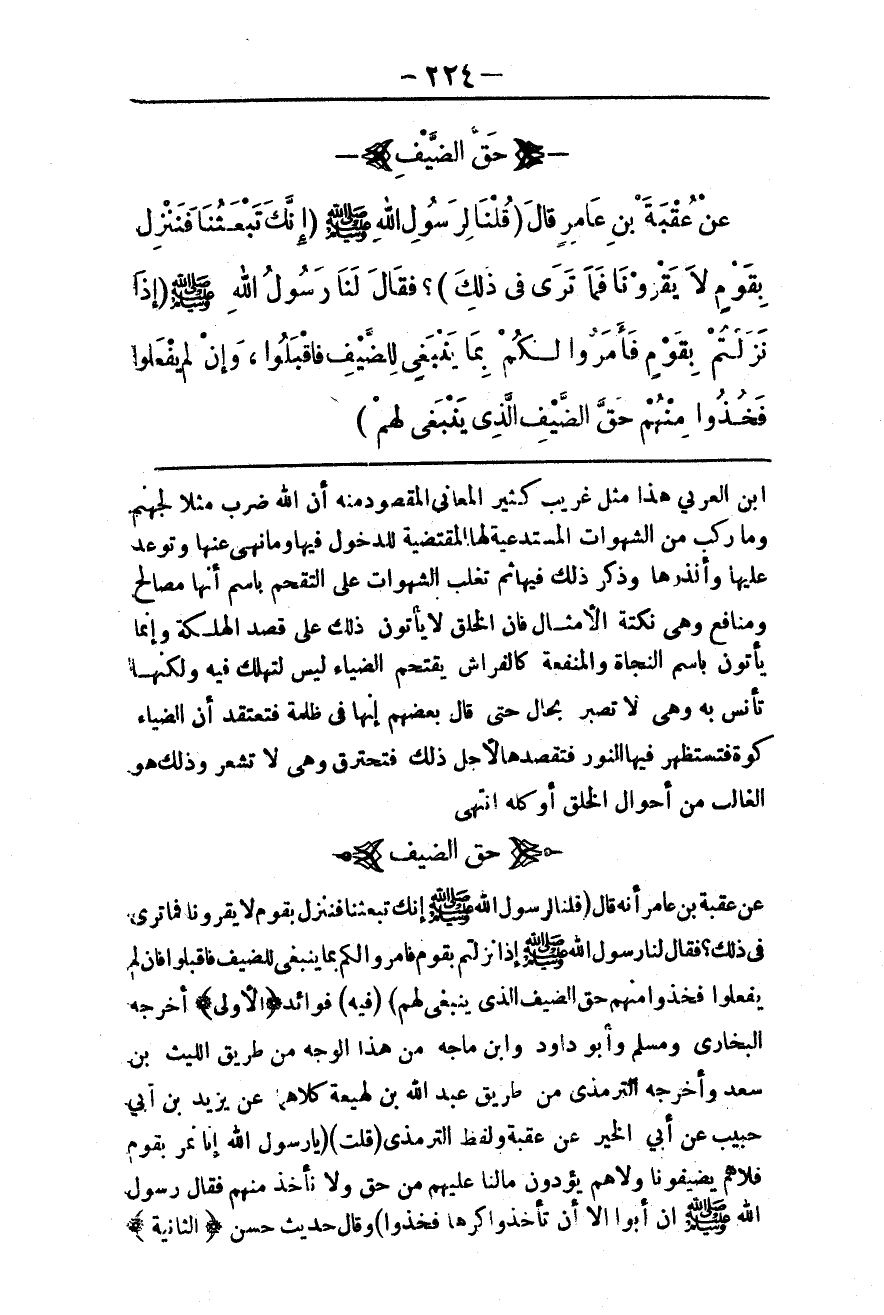 — ٢٢٤ —
حَقُّ الضَّيْفِ
عَنْ عُقْبَةَ بْنِ عَامِرٍ قَالَ ( قُلْنَا لِرَسُولِ اللهِ ﷺ ( إِنَّكَ تَبْعَثُنَا فَنَنْزِل
بِقَوْمٍ لاَ يَقْرُونَا فَمَا تَرَى فى ذلِكَ ) ؟ فقَالَ لَنَا رَسُولُ اللهِ ﷺ ( إذَا
نَزَلْتُمْ بِقَوْمٍ فَأَمَرُوا لَكُمْ بِمَا يَنْبَغِى لِلضَّيْفِ فاقْبَلُوا ، وَإنْ لم يفْعَلوا
فَخُذُوا مِنْهُمْ حَقَّ الضَّيْفِ الَّذِى يَنْبَغى لهمْ )
ابن العربي هذا مثل غريب كثير المعاني المقصود منه أن الله ضرب مثلا لجهنم
وما ركب من الشهوات المستدعية لها المقتضية للدخول فيها وما نهى عنها وتوعد
عليها وأنذرها وذكر ذلك فيها ثم تغلب الشهوات على التقحم باسم أنها مصالح
ومنافع وهى نكتة الأمثال فان الخلق لا يأتون ذلك على قصد الهلكة وإنما
يأتون باسم النجاة والمنفعة كالفراش يقتحم الضياء ليس لتهلك فيه ولكنها
تأنس به وهى لا تصبر بحال حتى قال بعضهم إنها فى ظلمة فتعتقد أن الضياء
كوة فتستظهر فيها النور فتقصدها لأجل ذلك فتحترق وهى لا تشعر وذلك هو
الغالب من أحوال الخلق أو كله انتهى
حق الضيف
عن عقبة بن عامر أنه قال ( قلنا لرسول الله ﷺ إنك تبعثنا فننزل بقوم لا يقرونا فما ترى
فى ذلك ؟ فقال لنا رسول الله ﷺ إذا نزلتم بقوم فامروا لكم بما ينبغى للضيف فاقبلوا فان لم
يفعلوا فخذوا منهم حق الضيف الذى ينبغى لهم ) ( فيه ) فوائد ﴿ الأولى ﴾ أخرجه
البخارى ومسلم وأبو داود وابن ماجه من هذا الوجه من طريق الليث بن
سعد وأخرجه الترمذى من طريق عبد الله بن لهيعة كلاهما عن يزيد بن أبي
حبيب عن أبي الخير عن عقبة ولفظ الترمذى ( قلت ) ( يا رسول الله إنا نمر بقوم
فلاهم يضيفونا ولاهم يؤدون مالنا عليهم من حق ولا نأخذ منهم فقال رسول
الله ﷺ ان أبوا الا أن تأخذوا كرها فخذوا ) وقال حديث حسن ﴿ الثانية ﴾